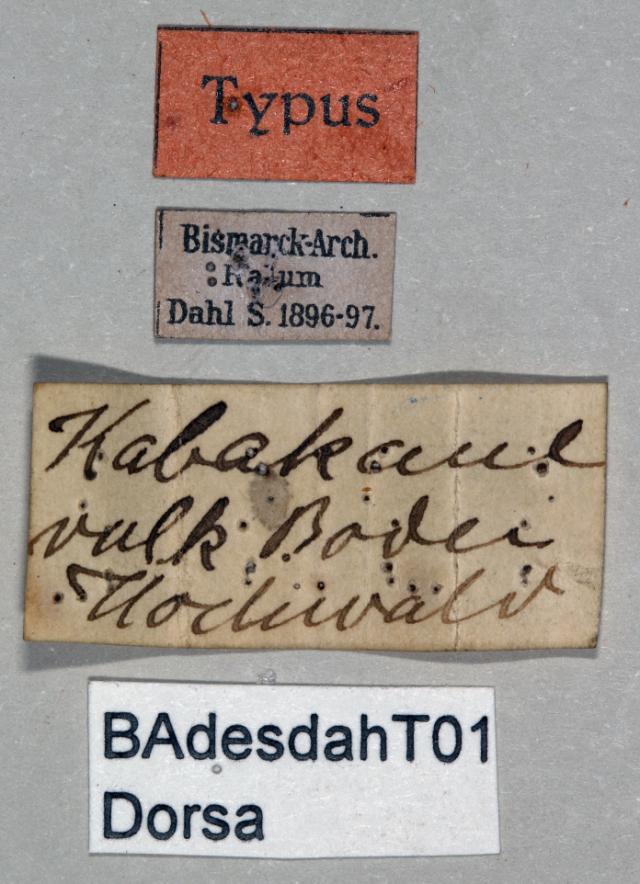 Typus
Bismarck-Arch.
Ralum
Dahl S. 1896-97.
Kabakaul
vulk. Boden
Hochwald
BAdesdahT01
Dorsa